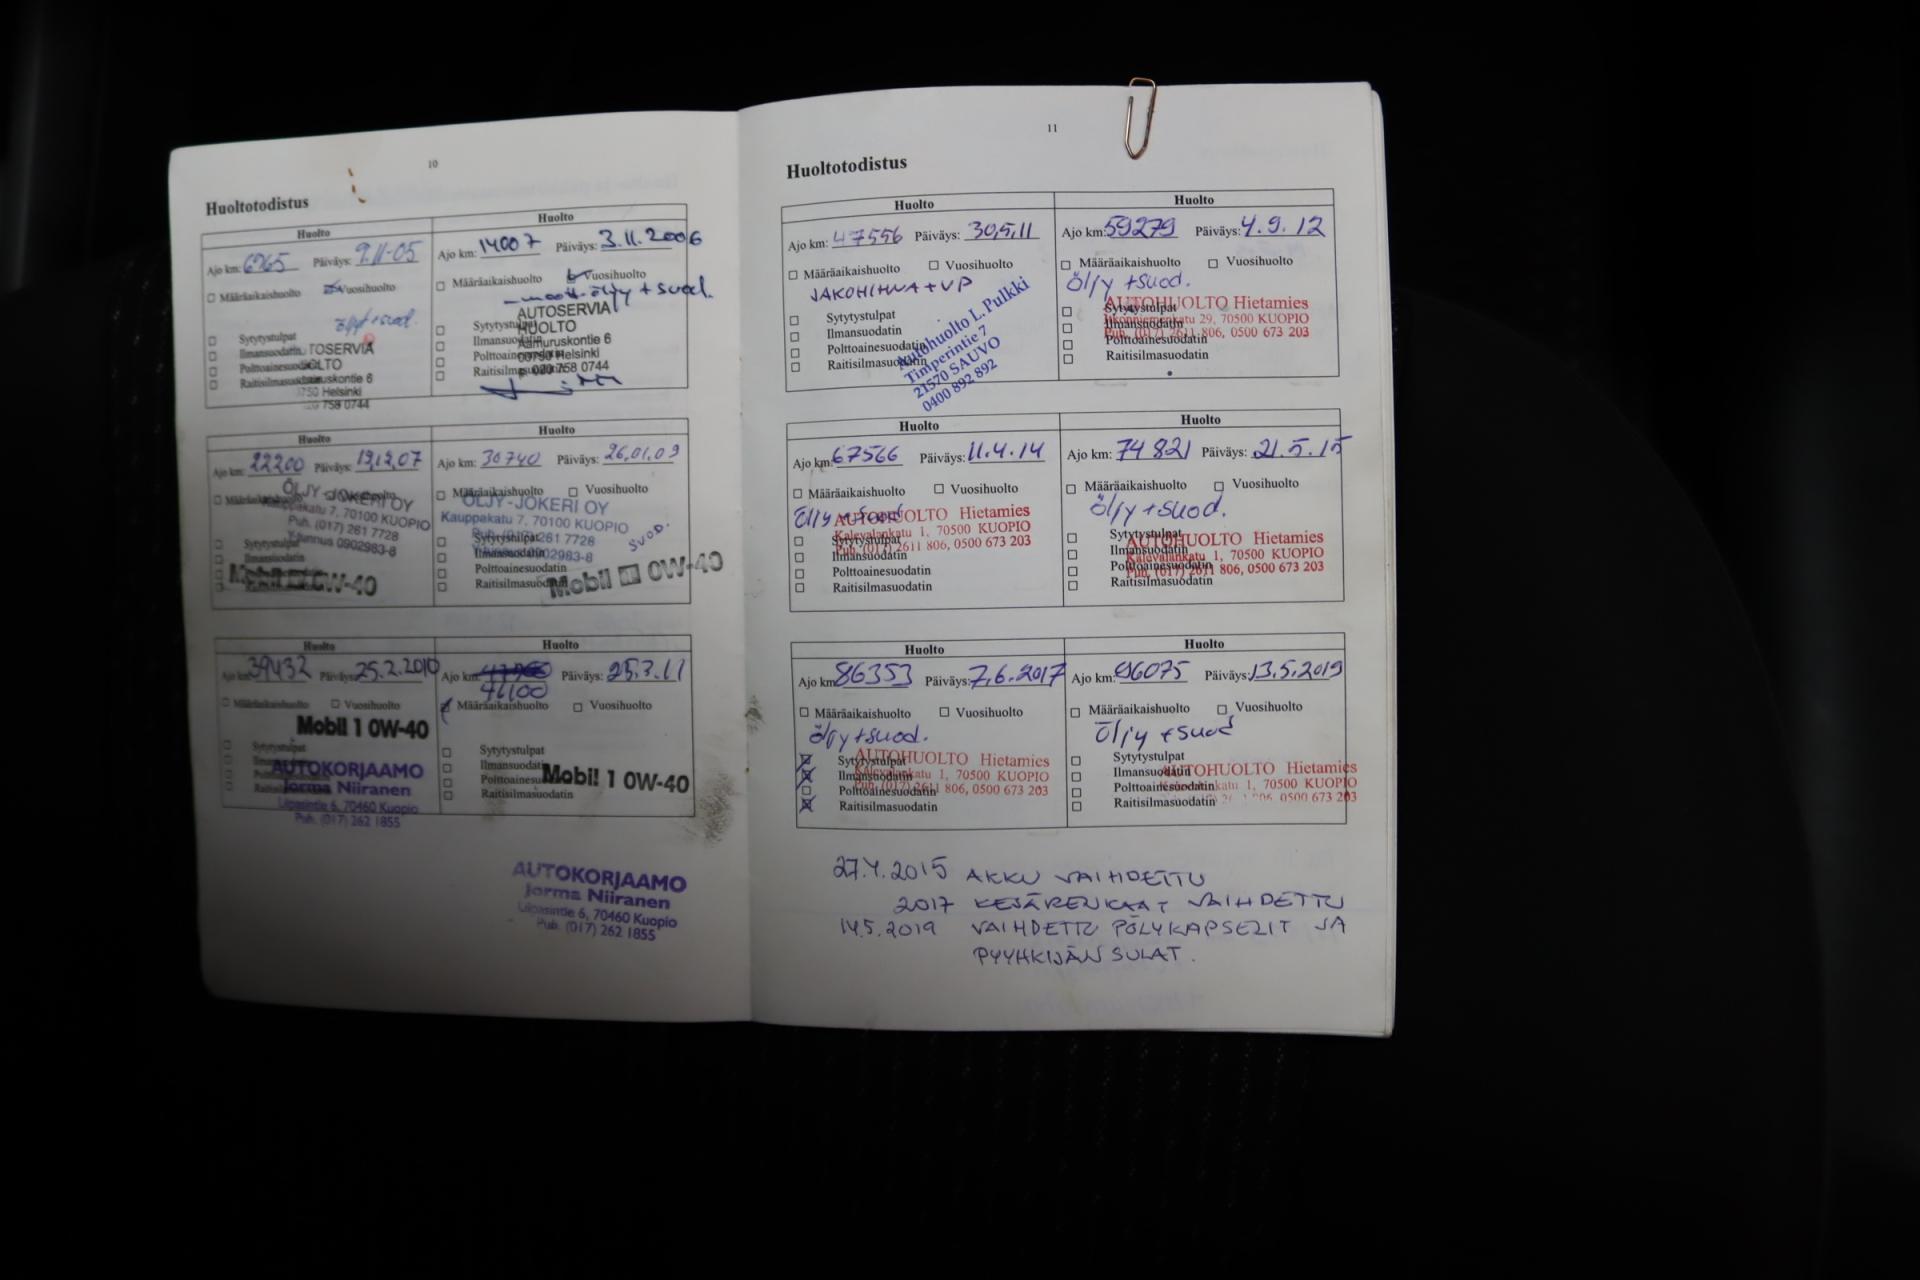 10
Huoltotodistus
Huolto
Ajo km: 6765 Päiväys: 9.11-05
Määräaikaishuolto Vuosihuolto
öljy+suod.
Sytytystulpat
Ilmansuodatin TOSERVIA
Polttoainesuodatin LTO
Raitisilmasuodatin uruskontie 6
750 Helsinki
758 0744
Huolto
Ajo km: 14007 Päiväys: 3.11.2006
Määräaikaishuolto Vuosihuolto
-moott.öljy + suod.
AUTOSERVIA
Sytytystulpat HUOLTO
Ilmansuodatin Aamuruskontie 6
Polttoainesuodatin 00750 Helsinki
Raitisilmasuodatin p. 020 758 0744
Huolto
Ajo km: 22200 Päiväys: 19.12.07
Määräaikaishuolto Vuosihuolto
ÖLJY-JOKERI OY
Kauppakatu 7, 70100 KUOPIO
Puh. (017) 261 7728
Y-tunnus 0902983-8
Sytytystulpat
Ilmansuodatin
Mobil 1 0W-40
Huolto
Ajo km: 30740 Päiväys: 26.01.09
Määräaikaishuolto Vuosihuolto
ÖLJY-JOKERI OY
Kauppakatu 7, 70100 KUOPIO
Puh. (017) 261 7728
Sytytystulpat
Y-tunnus 0902983-8
SUOD.
Ilmansuodatin
Polttoainesuodatin
Raitisilmasuodatin
Mobil 1 0W-40
Huolto
Ajo km: 39432 Päiväys: 25.2.2010
Määräaikaishuolto Vuosihuolto
Mobil 1 0W-40
Sytytystulpat
AUTOKORJAAMO
Jorma Niiranen
Liipasintie 6, 70460 Kuopio
Puh. (017) 262 1855
Huolto
Ajo km: Päiväys: 25.3.11
Määräaikaishuolto Vuosihuolto
Sytytystulpat
Ilmansuodatin
Polttoainesuodatin
Raitisilmasuodatin
Mobil 1 0W-40
AUTOKORJAAMO
Jorma Niiranen
Liipasintie 6, 70460 Kuopio
Puh. (017) 262 1855
11
Huoltotodistus
Huolto
Ajo km: 47556 Päiväys: 30.5.11
Määräaikaishuolto Vuosihuolto
JAKOHIHNA + VP
Sytytystulpat
Ilmansuodatin
Polttoainesuodatin
Raitisilmasuodatin
Autohuolto L. Pulkki
Timperintie 7
21570 SAUVO
0400 892 892
Huolto
Ajo km: 59279 Päiväys: 4.9.12
Määräaikaishuolto Vuosihuolto
öljy +suod.
AUTOHUOLTO Hietamies
Sytytystulpat
29, 70500 KUOPIO
Ilmansuodatin
Puh. (017) 2611 806, 0500 673 203
Polttoainesuodatin
Raitisilmasuodatin
Huolto
Ajo km: 67566 Päiväys: 11.4.14
Määräaikaishuolto Vuosihuolto
öljy + suod
AUTOHUOLTO Hietamies
Kalevalankatu 1, 70500 KUOPIO
Sytytystulpat
Puh. (017) 2611 806, 0500 673 203
Ilmansuodatin
Polttoainesuodatin
Raitisilmasuodatin
Huolto
Ajo km: 74821 Päiväys: 21.5.15
Määräaikaishuolto Vuosihuolto
öljy +suod.
Sytytystulpat
AUTOHUOLTO Hietamies
Ilmansuodatin
Kalevalankatu 1, 70500 KUOPIO
Polttoainesuodatin
Puh. (017) 2611 806, 0500 673 203
Raitisilmasuodatin
Huolto
Ajo km: 86353 Päiväys: 7.6.2017
Määräaikaishuolto Vuosihuolto
öljy+suod.
AUTOHUOLTO Hietamies
Sytytystulpat
Kalevalankatu 1, 70500 KUOPIO
Ilmansuodatin
Puh. (017) 2611 806, 0500 673 203
Polttoainesuodatin
Raitisilmasuodatin
Huolto
Ajo km: 96075 Päiväys: 13.5.2019
Määräaikaishuolto Vuosihuolto
öljy +suod
Sytytystulpat
AUTOHUOLTO Hietamies
Ilmansuodatin
Kalevalankatu 1, 70500 KUOPIO
Polttoainesuodatin
0500 673 203
Raitisilmasuodatin
27.4.2015 AKKU VAIHDETTU
2017 KESÄRENKAAT VAIHDETTU
14.5.2019 VAIHDETTU PÖLYKAPSELIT JA
PYYHKIJÄN SULAT.